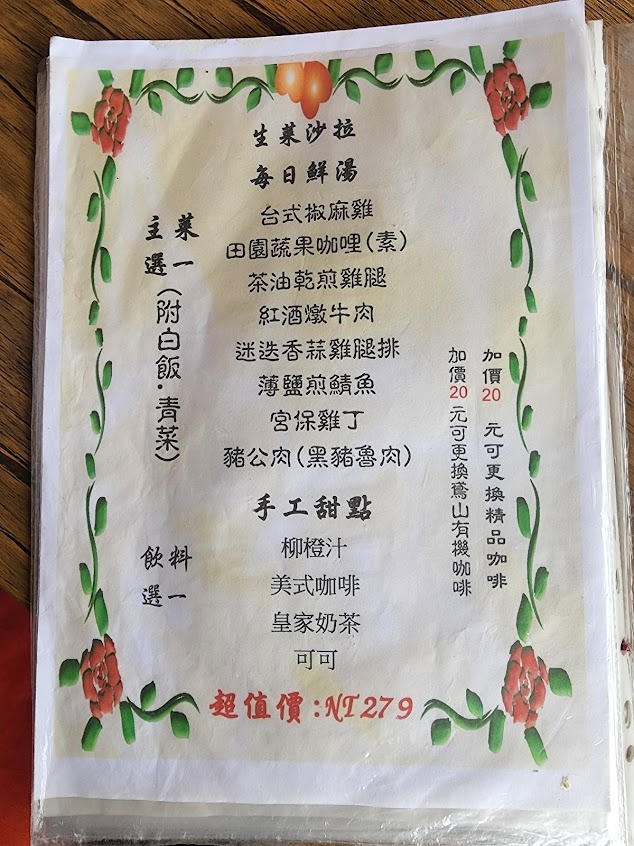 生菜沙拉
每日鮮湯
主菜
選一
(附白飯·青菜)
台式椒麻雞
田園蔬果咖哩(素)
茶油乾煎雞腿
紅酒燉牛肉
迷迭香蒜雞腿排
薄鹽煎鯖魚
宮保雞丁
豬公肉(黑豬魯肉)
手工甜點
飲料
選一
柳橙汁
美式咖啡
皇家奶茶
可可
加價20 元可更換精品咖啡
加價20 元可更換鳶山有機咖啡
超值價:NT279